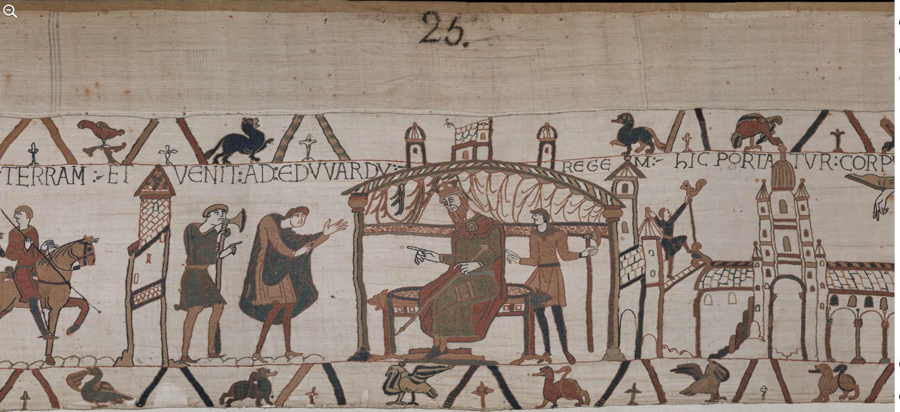 25.
TERRAM :- ET VENIT: AD: EDVVARDV:- REGEM:- hIC PORTATVR: CORP